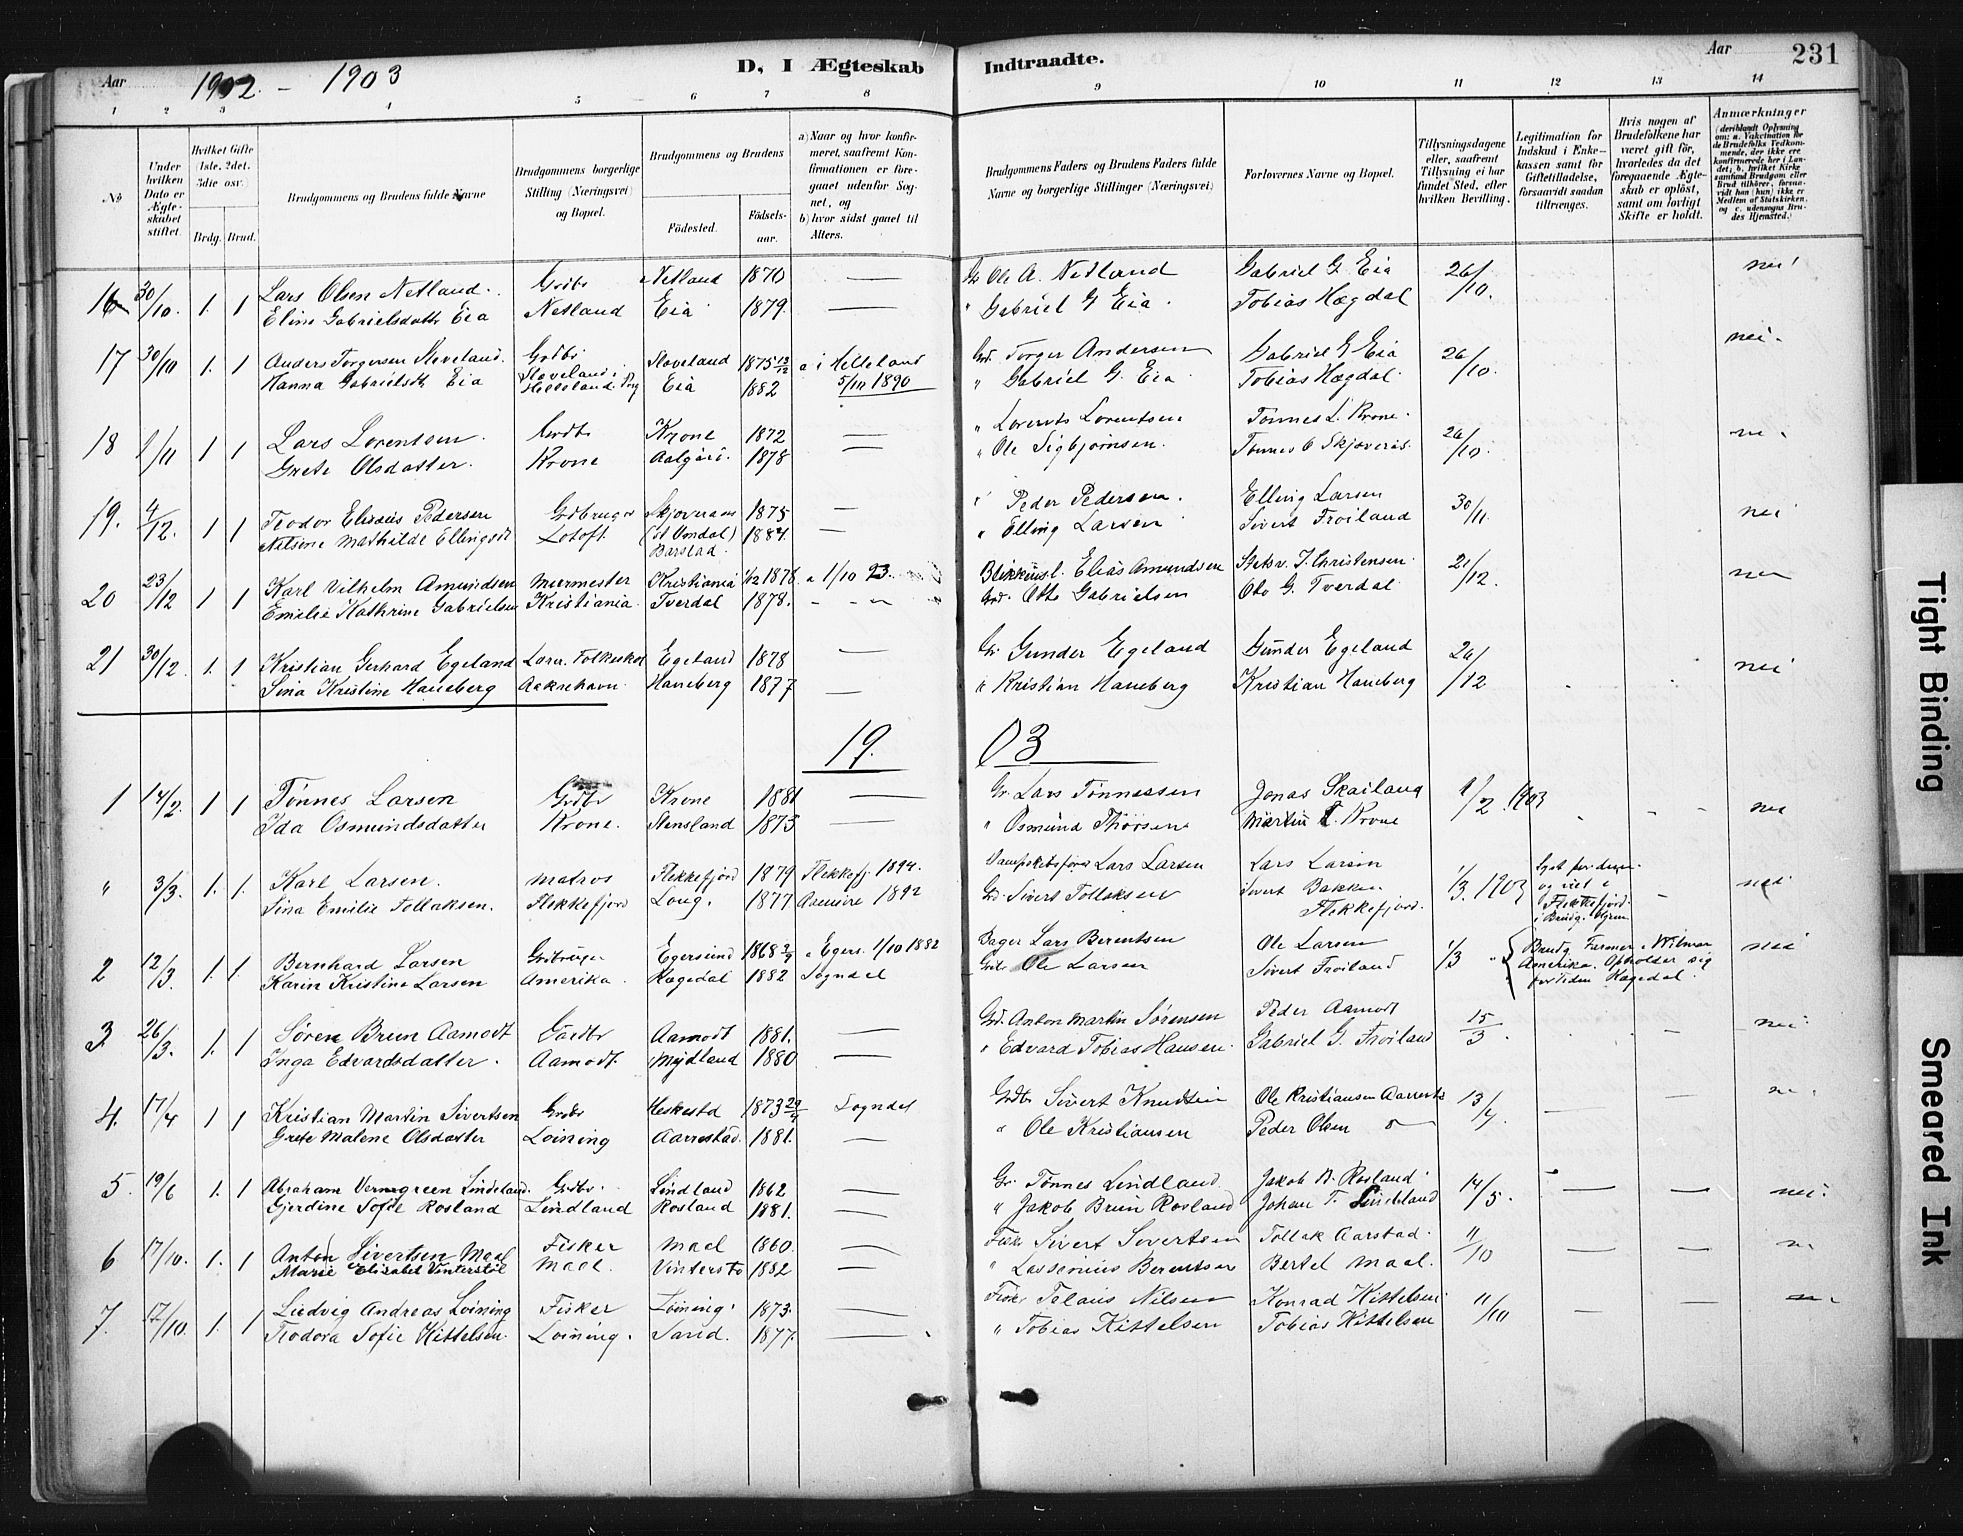 Aar 1902 - 1903 D, I Ægteskab Indtraadte. Aar 231
1 2 3 4 5 6 7 8 9 10 11 12 13 14
No
Under hvilken Dato er Ægteskabet stiftet.
Hvilket Gifte (1ste. 2det. 3die osv.)
Brdg. Brud.
Brudgommens og Brudens fulde Navne
Brudgommens borgerlige Stilling (Næringsvei) og Bopæl.
Brudgommens og Brudens
Födested. Födselsaar.
a) Naar og hvor konfirmeret, saafremt Konfirmationen er foregaaet udenfor Sognet, og
b) hvor sidst gaaet til Alters.
Brudgommens Faders og Brudens Faders fulde Navne og borgerlige Stillinger (Næringsvei)
Forlovernes Navne og Bopæl.
Tillysningsdagene eller, saafremt Tillysning ei har fundet Sted, efter hvilken Bevilling.
Legitimation for Indskud i Enkekassen samt for Giftetilladelse, forsaavidt saadan tiltrænges.
Hvis nogen af Brudefolkene har været gift för, hvorledes da det foregaaende Ægteskab er oplöst, samt om lovligt Skifte er holdt.
Anmærkninger
(deriblandt Oplysning om: a. Vakcination for de Brudefolks Vedkommende, der ikke ere konfirmerede her i Landet; b. hvilket Kirkesamfund Brudgom eller Brud tilhörer, forsaavidt han (hun) ikke er Medlem af Statskirken, og c. udensogns Brudes Hjemsted.)
16 30/10. 1. 1 Lars Olsen Netland. Grdbr Netland 1870 — Gr Ole A. Netland Gabriel G. Eia 26/10. nei
Eline Gabrielsdatr Eia Netland Eia 1879. — " Gabriel G Eia. Tobias Hægdal
17 30/10 1. 1 Anders Torgersen Sloveland. Grdbr. Sloveland 1875 12/12 a i Helleland Grd. Torger Andersen Gabriel G Eia 26/10. nei.
Hanna Gabrielsdtr Eia Sloveland i Helleland Eia 1882 5/10 1890 " Gabriel G. Eia Tobias Hægdal.
18 1/11 1 1 Lars Lorentsen. Grdbr Krone 1872 — " Lorents Lorentsen Tönnes L. Krone. 26/10.
Grete Olsdatter. Krone Aalgård. 1878 — " Ole Sigbjørnsen. Tønnes O Skjæveras.
19. 4/12. 1 1 Teodor Eliseus Pedersen Grdbruger Skjæveraas 1875 — " Peder Pedersen. Elling Larsen 30/11. nei
Nilsine Mathilde Ellingsdt Lotoft. (St Omdal) Barstad. 1884. — " Elling Larsen Sivert Froiland
20 23/12 1 1 Karl Vilhelm Amundsen Murmester Kristiania 1/12 1878 a 1/10 93. Blikkensl. Elias Amundsen Statsv. J. Christensen. 21/12.
Emilie Kathrine Gabrielsen Kristiania. Tverdal 1878. Grd. Otto Gabrielsen Oto G. Tverdal
21 30/12. 1. 1 Kristian Gerhard Egeland Lærer. Folkeskol Egeland 1878 — Gr. Gunder Egeland Gunder Egeland 26/12 nei
Sina Kristine Haneberg Haneberg 1877 — " Kristian Haneberg Kristian Haneberg
19. 03
1 14/2. 1 1 Tönnes Larsen Grdbr Krone 1881 — Gr. Lars Tönnessen Jonas Skailand 1/2. 1903 nei
Ida Osmundsdatter Krone. Stensland 1873 — " Osmund Thorsen Martin T. Krone
" 3/3. 1. 1. Karl Larsen. Matros Flekkefjord 1879 Flekkefj. 1894. Dampskibsfører Lars Larsen Lars Larsen 1/3. 1903 nei
Sina Emilie Tollaksen. Flekkefjord Loug. 1877 1892 Grd. Sivert Tollaksen Sivert Bakken Flekkefjord.
og viet i Flekkefjord.
2 12/3. 1 1. Bernhard Larsen Grdbruger Egersund 1868 2/9 a Egers. 1/10 1882 Bager Lars Berentsen Ole Larsen 1/3 Brudg. Farmer i Wilmar nei
Karin Kristine Larsen Amerika. Hægedal 1882 Sogndal Grdb. Ole Larsen Sivert Froiland Amerika. Opholder sig
for Tiden Hægedal.
3. 26/3. 1. 1 Søren Bruun Aamodt Gaardbr Aamodt 1881. — Grd. Anton Martin Sørensen Peder Aamodt 15/3. nei
Inga Edvardsdatter. Aamodt. Mydland 1880 — " Edvard Tobias Hansen. Gabriel G. Froiland
4. 17/4 1 1 Kristian Martin Sivertsen Grdbr Heskestd 1873 29/9 Sogndal Grdbr Sivert Knudsen Ole Kristiansen 13/4.
Grete Malene Olsdatter Loining Aarrestad. 1881. — " Ole Kristiansen Peder Olsen
5. 19/6 1. 1 Abraham Lindland. Grdbr. Lindland 1862 — Gr. Tönnes Lindland. Jakob B. Rosland. 14/5. — — nei.
Gjerdine Sofie Rosland Lindland Rosland 1881. — " Jakob Bruun Rosland Johan T. Lindland
6 17/10. 1. 1 Anton Sivertsen Maal Fisker Maal 1860. — Fisk. Sivert Sivertsen Tollak Aarstad. 11/10 — —
Marie Elisabet Vinterstøl Maal. Vinterstø 1882 — " Lassenius Berentsen Bertel Maal.
7. 17/10. 1. 1 Ludvig Andreas Loining Fisker Loining. 1873. — Fisk. Tolaus Nilsen Konrad Kittelsen. 11/10 — —
Teodora Sofie Kittelsen. Loining. Sand. 1877. — " Tobias Kittelsen Tobias Kittelsen
Tight Binding
Smeared Ink